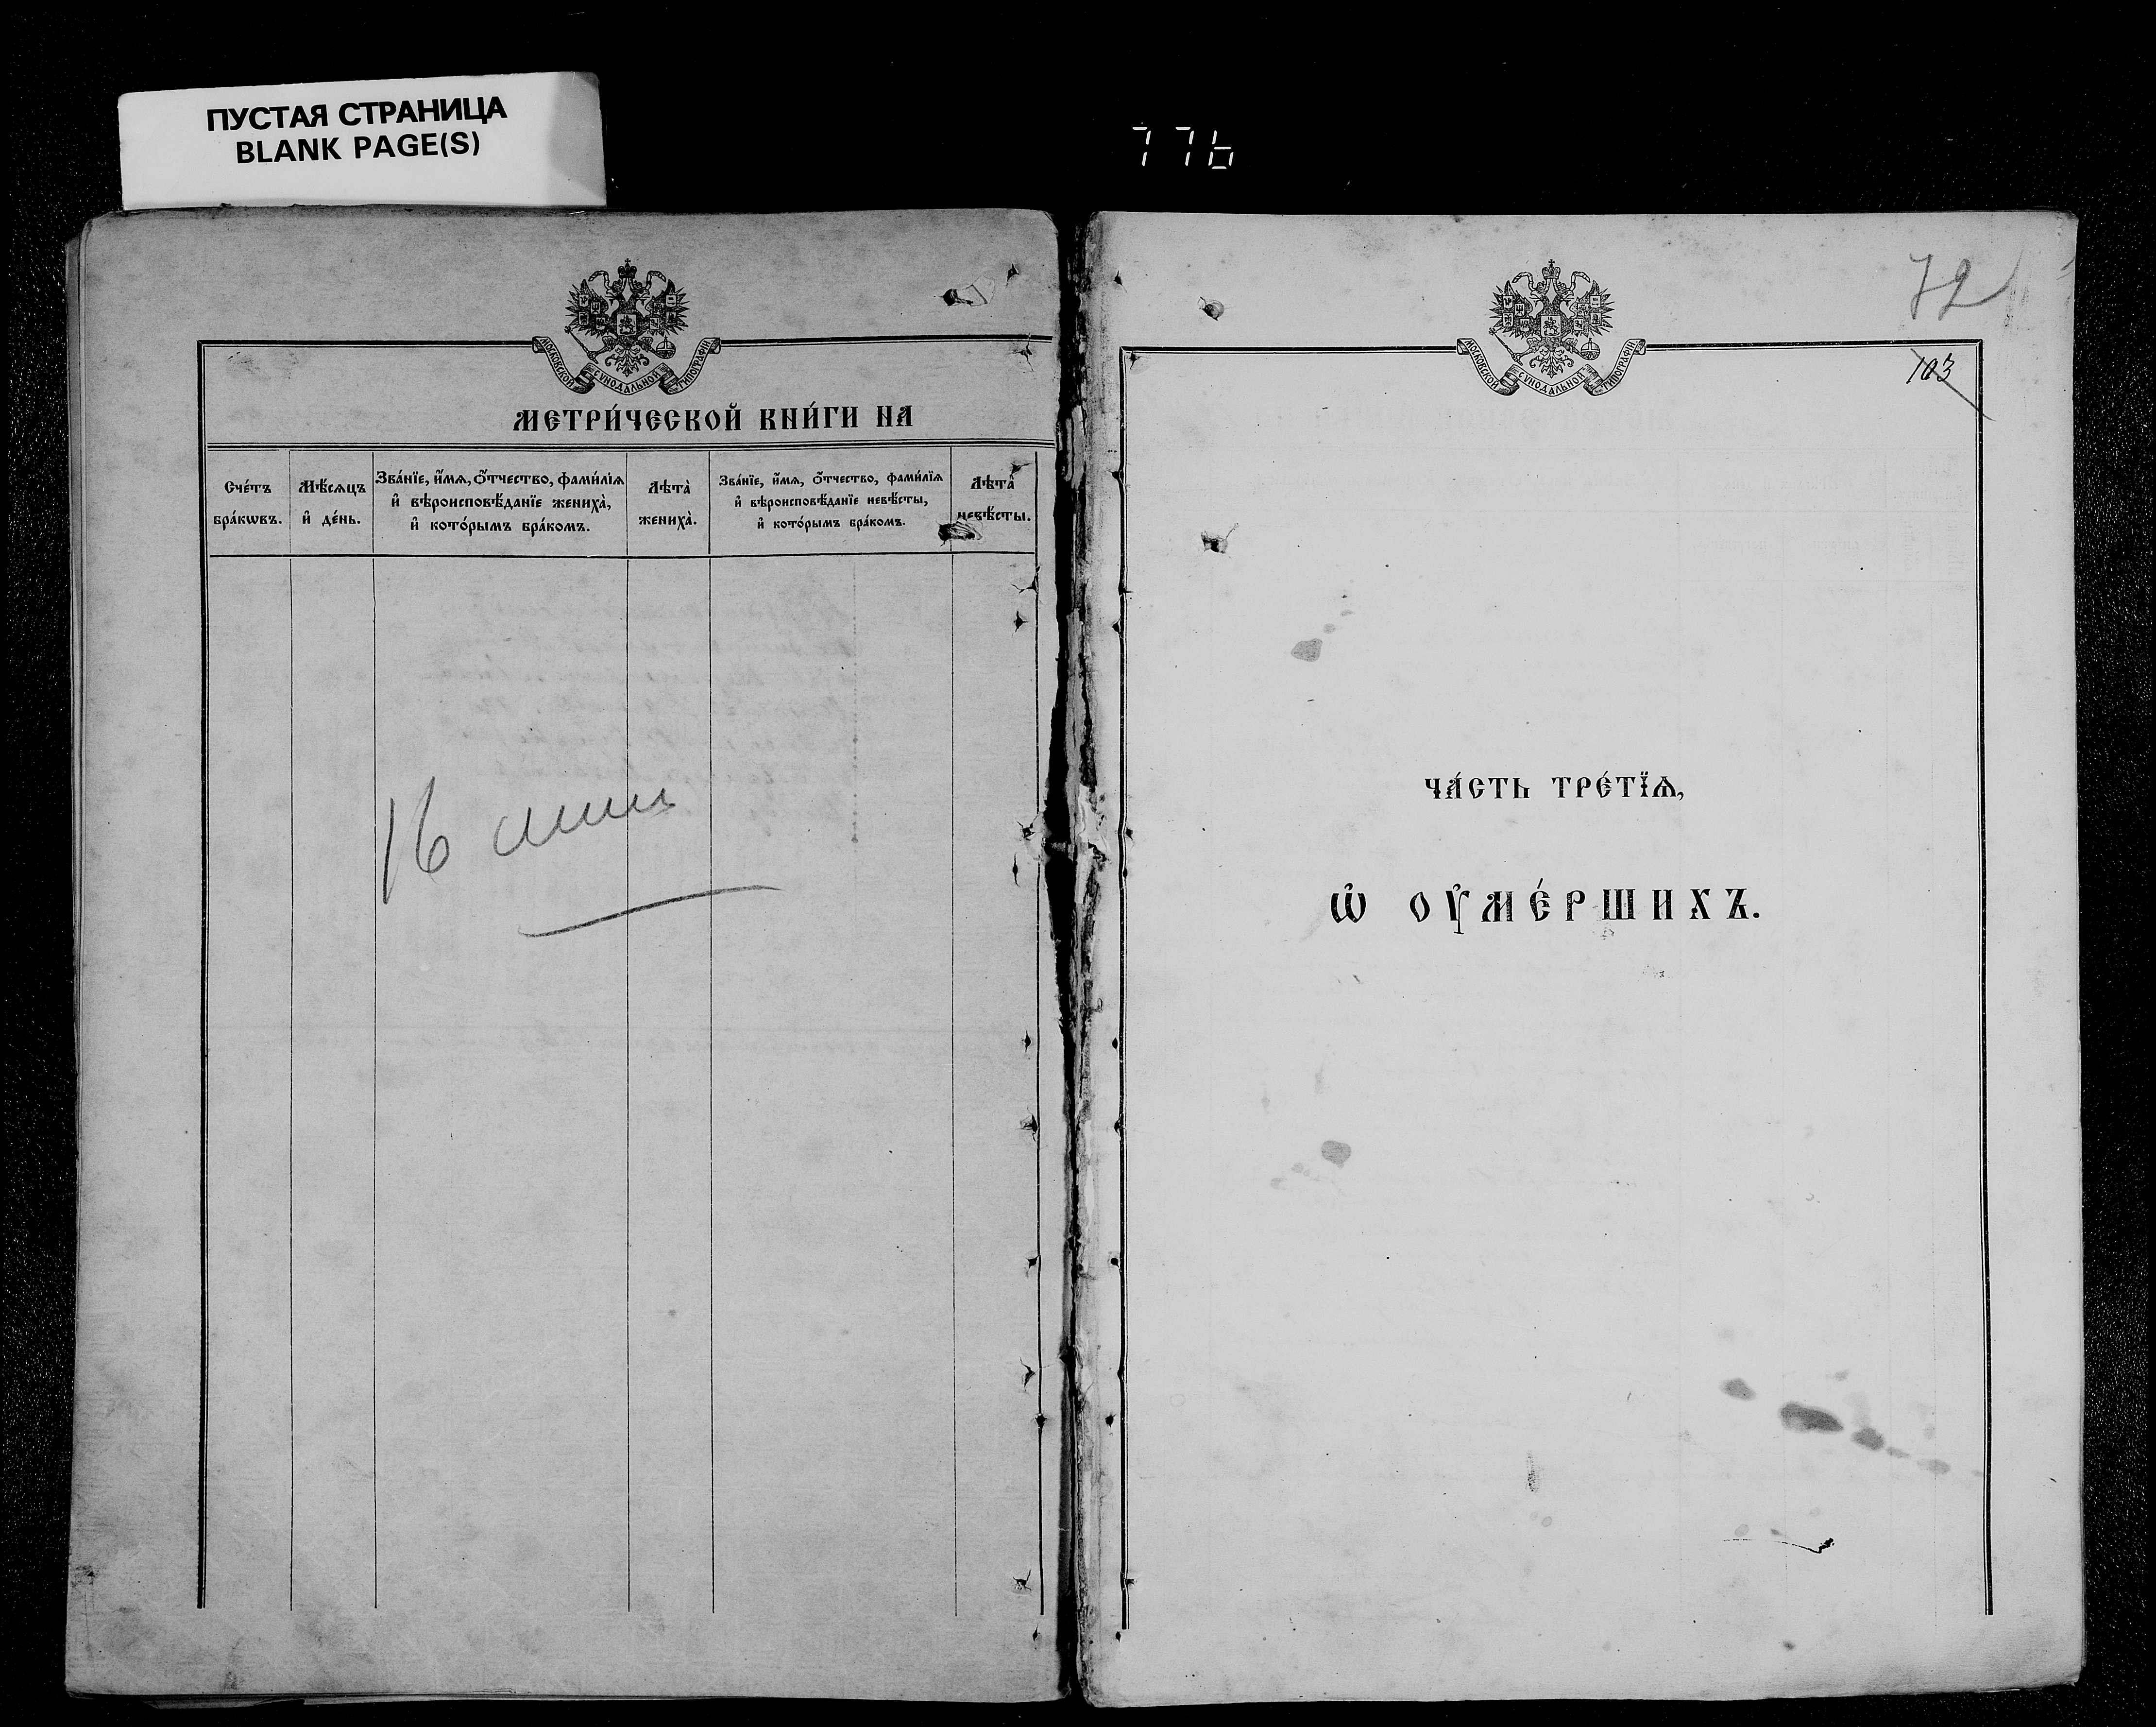 ПУСТАЯ СТРАНИЦА
BLANK PAGE(S)
776
МОСКОВСКОЙ СѴНОДАЛЬНОЙ ТИПОГРАФІИ
МЕТРИ́ЧЕСКОЙ КНИ́ГИ НА
Сче́тъ бра́кѡвъ.
Мѣ́сѧцъ и҆ де́нь.
Зва́нїе, и҆́мѧ, ѻ҆́тчество, фами́лїѧ
и҆ вѣроисповѣ́данїе жениха̀,
и҆ кото́рымъ бра́комъ.
Лѣта̀ жениха̀.
Зва́нїе, и҆́мѧ, ѻ҆́тчество, фами́лїѧ
и҆ вѣроисповѣ́данїе невѣ́сты,
и҆ кото́рымъ бра́комъ.
Лѣта̀ невѣ́сты.
16
72
МОСКОВСКОЙ СѴНОДАЛЬНОЙ ТИПОГРАФІИ
103
ЧА́СТЬ ТРЕ́ТЇѦ,
Ѡ҆ ОУ҆МЕ́РШИХЪ.